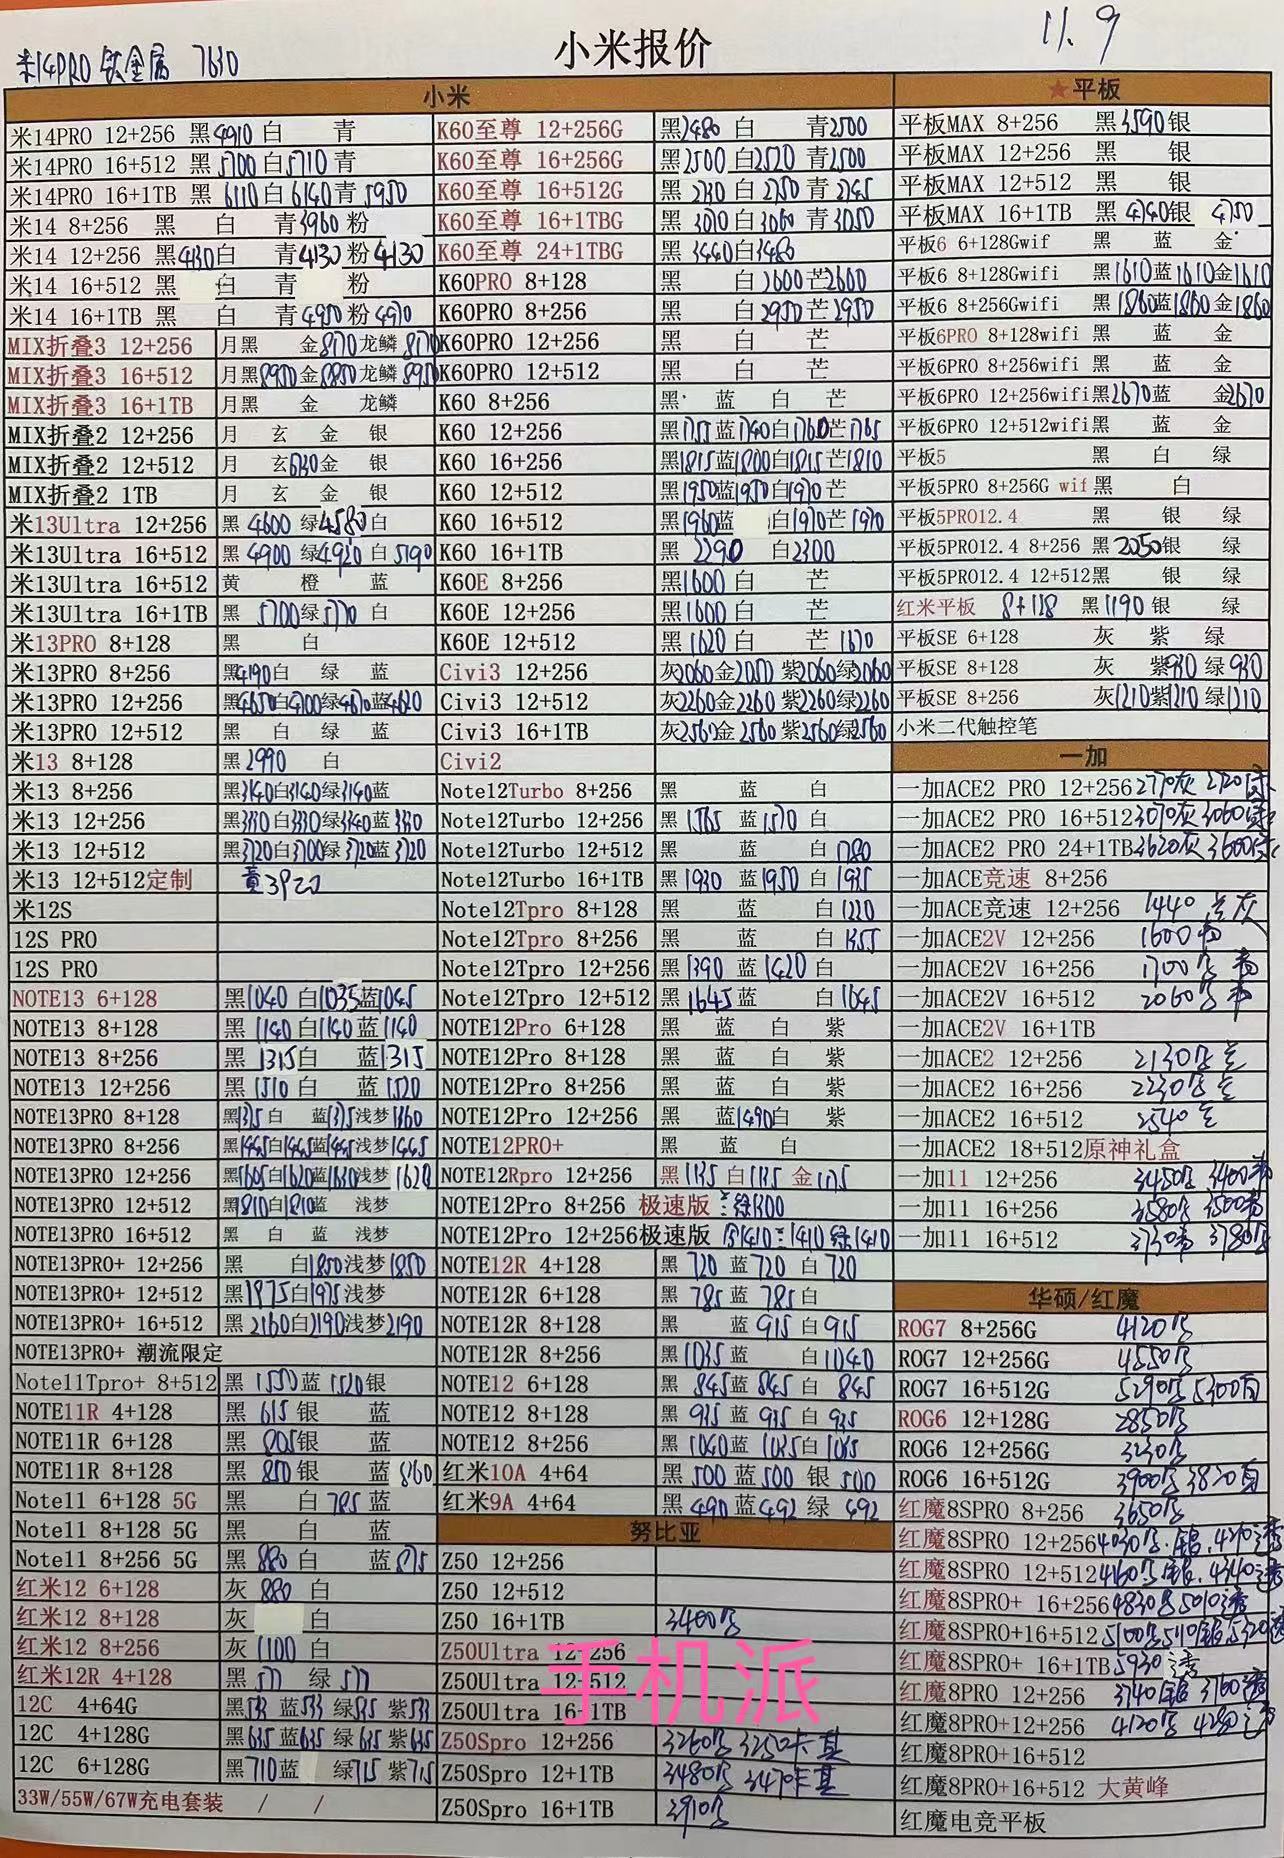 小米报价
11.9
米14PRO 钛金属 7630
小米
米14PRO 12+256 黑4910 白 青
米14PRO 16+512 黑5700白5710青
米14PRO 16+1TB 黑6110白6140青5950
米14 8+256 黑 白 青3960粉
米14 12+256 黑4130白 青4130粉4130
米14 16+512 黑 白 青 粉
米14 16+1TB 黑 白 青4950粉4970
MIX折叠3 12+256 月黑 金8770龙鳞
MIX折叠3 16+512 月黑8950金8850龙鳞8950
MIX折叠3 16+1TB 月黑 金 龙鳞
MIX折叠2 12+256 月 玄 金 银
MIX折叠2 12+512 月 玄6130金 银
MIX折叠2 1TB 月 玄 金 银
米13Ultra 12+256 黑4600绿4580白
米13Ultra 16+512 黑4900绿4920白5190
米13Ultra 16+512 黄 橙 蓝
米13Ultra 16+1TB 黑5700绿5770白
米13PRO 8+128 黑 白
米13PRO 8+256 黑4190白 绿 蓝
米13PRO 12+256 黑4650白4700绿4670蓝4620
米13PRO 12+512 黑 白 绿 蓝
米13 8+128 黑2990 白
米13 8+256 黑3140白3140绿3140蓝
米13 12+256 黑3330白3330绿3340蓝3330
米13 12+512 黑3720白3700绿3720蓝3720
米13 12+512定制
米12S
12S PRO
12S PRO
NOTE13 6+128 黑1040白1035蓝1045
NOTE13 8+128 黑1140白1140蓝1140
NOTE13 8+256 黑1315白 蓝1315
NOTE13 12+256 黑1510白 蓝1520
NOTE13PRO 8+128 黑1375白 蓝1375浅梦1360
NOTE13PRO 8+256 黑1445白1445蓝1445浅梦1445
NOTE13PRO 12+256 黑1605白1620蓝1630浅梦1620
NOTE13PRO 12+512 黑1810白1810蓝 浅梦
NOTE13PRO 16+512 黑 白 蓝 浅梦
NOTE13PRO+ 12+256 黑 白1850浅梦1850
NOTE13PRO+ 12+512 黑1975白1975浅梦
NOTE13PRO+ 16+512 黑2160白2190浅梦2190
NOTE13PRO+ 潮流限定
Note11Tpro+ 8+512 黑1550蓝1520银
NOTE11R 4+128 黑615银 蓝
NOTE11R 6+128 黑805银 蓝
NOTE11R 8+128 黑850银 蓝860
Note11 6+128 5G 黑 白785蓝
Note11 8+128 5G 黑 白 蓝
Note11 8+256 5G 黑880白 蓝875
红米12 6+128 灰880白
红米12 8+128 灰 白
红米12 8+256 灰1100白
红米12R 4+128 黑577绿577
12C 4+64G 黑533蓝533绿535紫533
12C 4+128G 黑635蓝635绿635紫635
12C 6+128G 黑710蓝 绿715紫715
33W/55W/67W充电套装 / /
K60至尊 12+256G 黑2480白 青2500
K60至尊 16+256G 黑2500白2520青2500
K60至尊 16+512G 黑2730白2750青2745
K60至尊 16+1TBG 黑3070白3060青3050
K60至尊 24+1TBG 黑3440白3480
K60PRO 8+128 黑 白2600芒2600
K60PRO 8+256 黑 白2950芒2950
K60PRO 12+256 黑 白 芒
K60PRO 12+512 黑 白 芒
K60 8+256 黑 蓝 白 芒
K60 12+256 黑1755蓝1740白1760芒1765
K60 16+256 黑1815蓝1800白1815芒1810
K60 12+512 黑1950蓝1950白1970芒
K60 16+512 黑1960蓝 白1970芒1970
K60 16+1TB 黑2290 白2300
K60E 8+256 黑1600白 芒
K60E 12+256 黑1600白 芒
K60E 12+512 黑1620白 芒1670
Civi3 12+256 灰2060金2070紫2060绿2060
Civi3 12+512 灰2260金2260紫2260绿2260
Civi3 16+1TB 灰2560金2560紫2560绿2560
Civi2
Note12Turbo 8+256 黑 蓝 白
Note12Turbo 12+256 黑1565蓝1570白
Note12Turbo 12+512 黑 蓝 白1780
Note12Turbo 16+1TB 黑1930蓝1950白1935
Note12Tpro 8+128 黑 蓝 白1220
Note12Tpro 8+256 黑 蓝 白1355
Note12Tpro 12+256 黑1390蓝1420白
Note12Tpro 12+512 黑1645蓝 白1645
NOTE12Pro 6+128 黑 蓝 白 紫
NOTE12Pro 8+128 黑 蓝 白 紫
NOTE12Pro 8+256 黑 蓝 白 紫
NOTE12Pro 12+256 黑 蓝1490白 紫
NOTE12PRO+ 黑 蓝 白
NOTE12Rpro 12+256 黑1135白1135金1175
NOTE12Pro 8+256 极速版 绿1300
NOTE12Pro 12+256极速版 1410 1410绿1410
NOTE12R 4+128 黑720蓝720白720
NOTE12R 6+128 黑785蓝785白
NOTE12R 8+128 黑 蓝915白915
NOTE12R 8+256 黑1035蓝 白1040
NOTE12 6+128 黑845蓝845白845
NOTE12 8+128 黑935蓝935白935
NOTE12 8+256 黑1040蓝1035白1065
红米10A 4+64 黑500蓝500银500
红米9A 4+64 黑490蓝492绿492
努比亚
Z50 12+256
Z50 12+512
Z50 16+1TB 3400
Z50Ultra 12+256
Z50Ultra 12+512
Z50Ultra 16+1TB
Z50Spro 12+256 3260 3250
Z50Spro 12+1TB 3480 3470
Z50Spro 16+1TB 3910
★平板
平板MAX 8+256 黑3590银
平板MAX 12+256 黑 银
平板MAX 12+512 黑 银
平板MAX 16+1TB 黑4740银4750
平板6 6+128Gwif 黑 蓝 金
平板6 8+128Gwifi 黑1610蓝1610金1610
平板6 8+256Gwifi 黑1860蓝1860金1860
平板6PRO 8+128wifi 黑 蓝 金
平板6PRO 8+256wifi 黑 蓝 金
平板6PRO 12+256wifi黑2670蓝 金2670
平板6PRO 12+512wifi黑 蓝 金
平板5 黑 白 绿
平板5PRO 8+256G wif 黑 白
平板5PRO12.4 黑 银 绿
平板5PRO12.4 8+256 黑2050银 绿
平板5PRO12.4 12+512黑 银 绿
红米平板 8+128 黑1190银 绿
平板SE 6+128 灰 紫 绿
平板SE 8+128 灰 紫930绿930
平板SE 8+256 灰1210紫1210绿1210
小米二代触控笔
一加
一加ACE2 PRO 12+256 2770灰 2720
一加ACE2 PRO 16+512 3070灰 3060
一加ACE2 PRO 24+1TB 3620灰 3600
一加ACE竞速 8+256
一加ACE竞速 12+256 1440
一加ACE2V 12+256 1600
一加ACE2V 16+256 1700
一加ACE2V 16+512 2060
一加ACE2V 16+1TB
一加ACE2 12+256 2130
一加ACE2 16+256 2230
一加ACE2 16+512 2540
一加ACE2 18+512原神礼盒
一加11 12+256 3450 3400
一加11 16+256 3580 3500
一加11 16+512 3730 3780
华硕/红魔
ROG7 8+256G 4120
ROG7 12+256G 4550
ROG7 16+512G 5290 5300
ROG6 12+128G 2850
ROG6 12+256G 3230
ROG6 16+512G 3900 3820
红魔8SPRO 8+256 3650
红魔8SPRO 12+256 4030
红魔8SPRO 12+512 4160
红魔8SPRO+ 16+256 4830 5010透
红魔8SPRO+16+512 5100
红魔8SPRO+ 16+1TB 5930透
红魔8PRO 12+256 3740 3760透
红魔8PRO+12+256 4120
红魔8PRO+16+512
红魔8PRO+16+512 大黄峰
红魔电竞平板
手机派